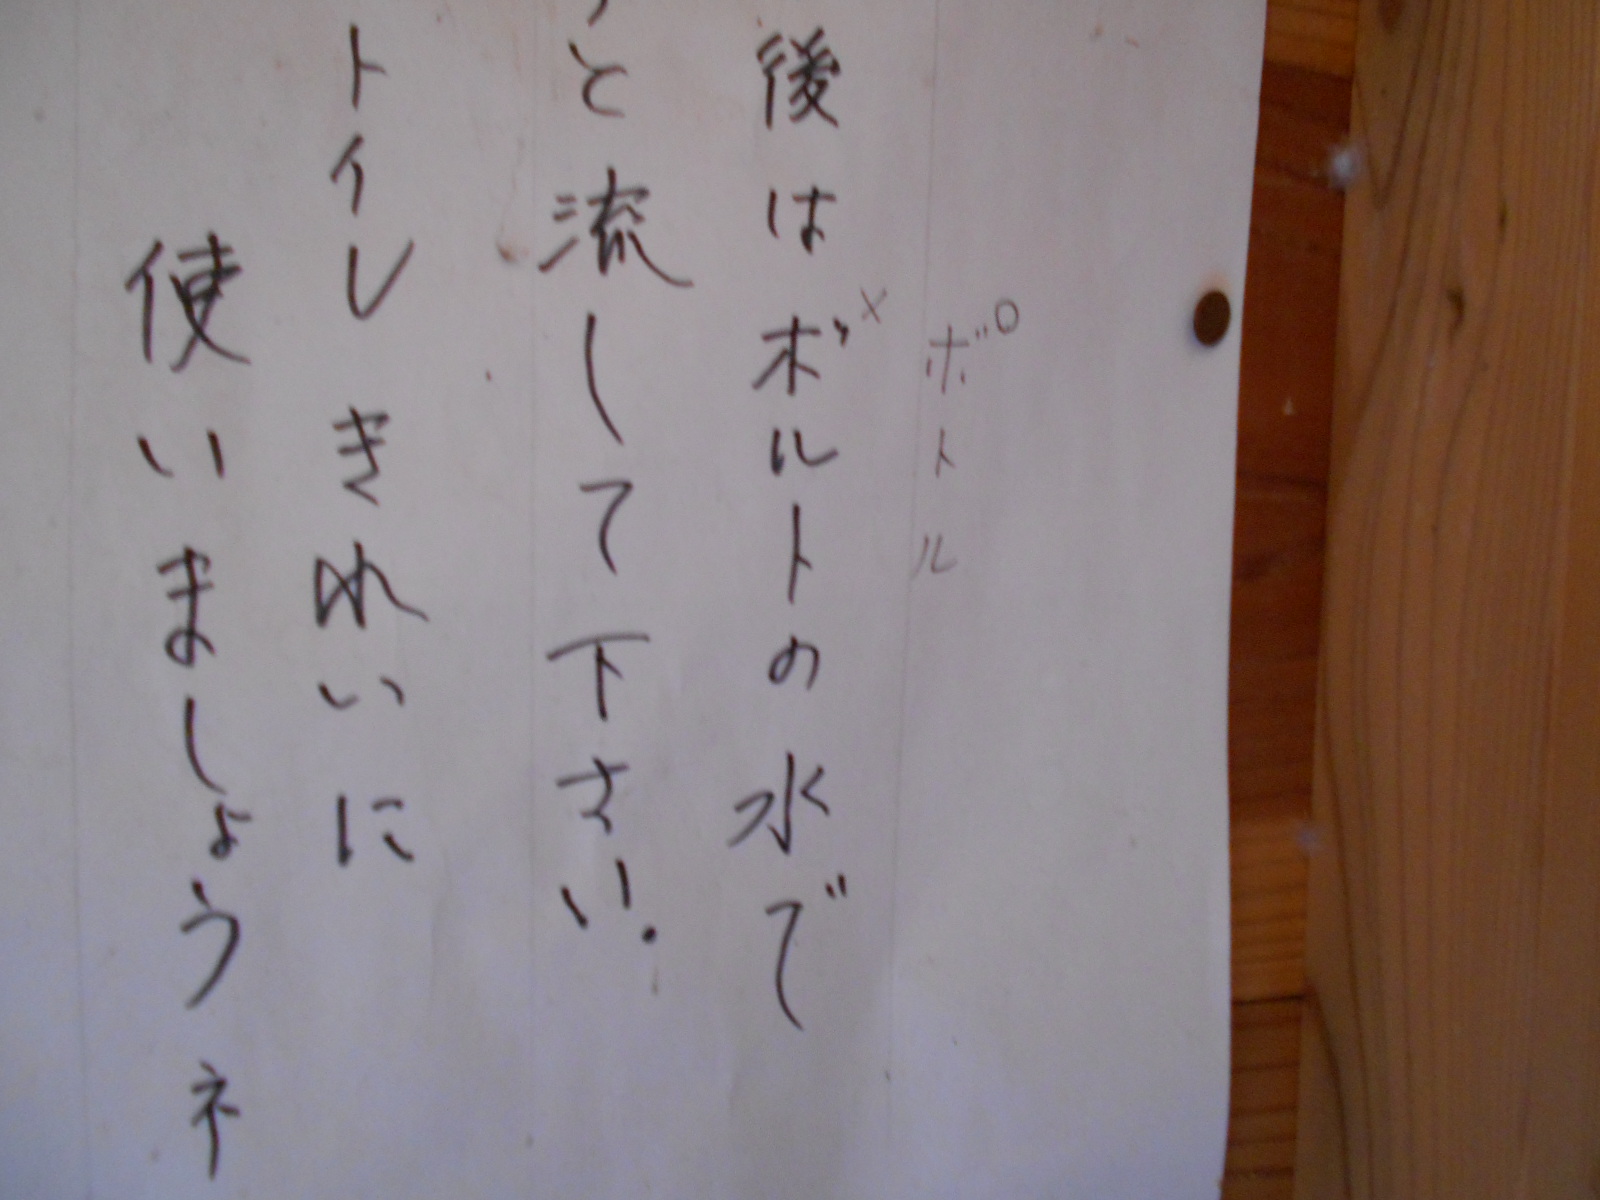 ボトル○
後はボルト×の水で
と流して下さい.
トイレきれいに
使いましょうネ